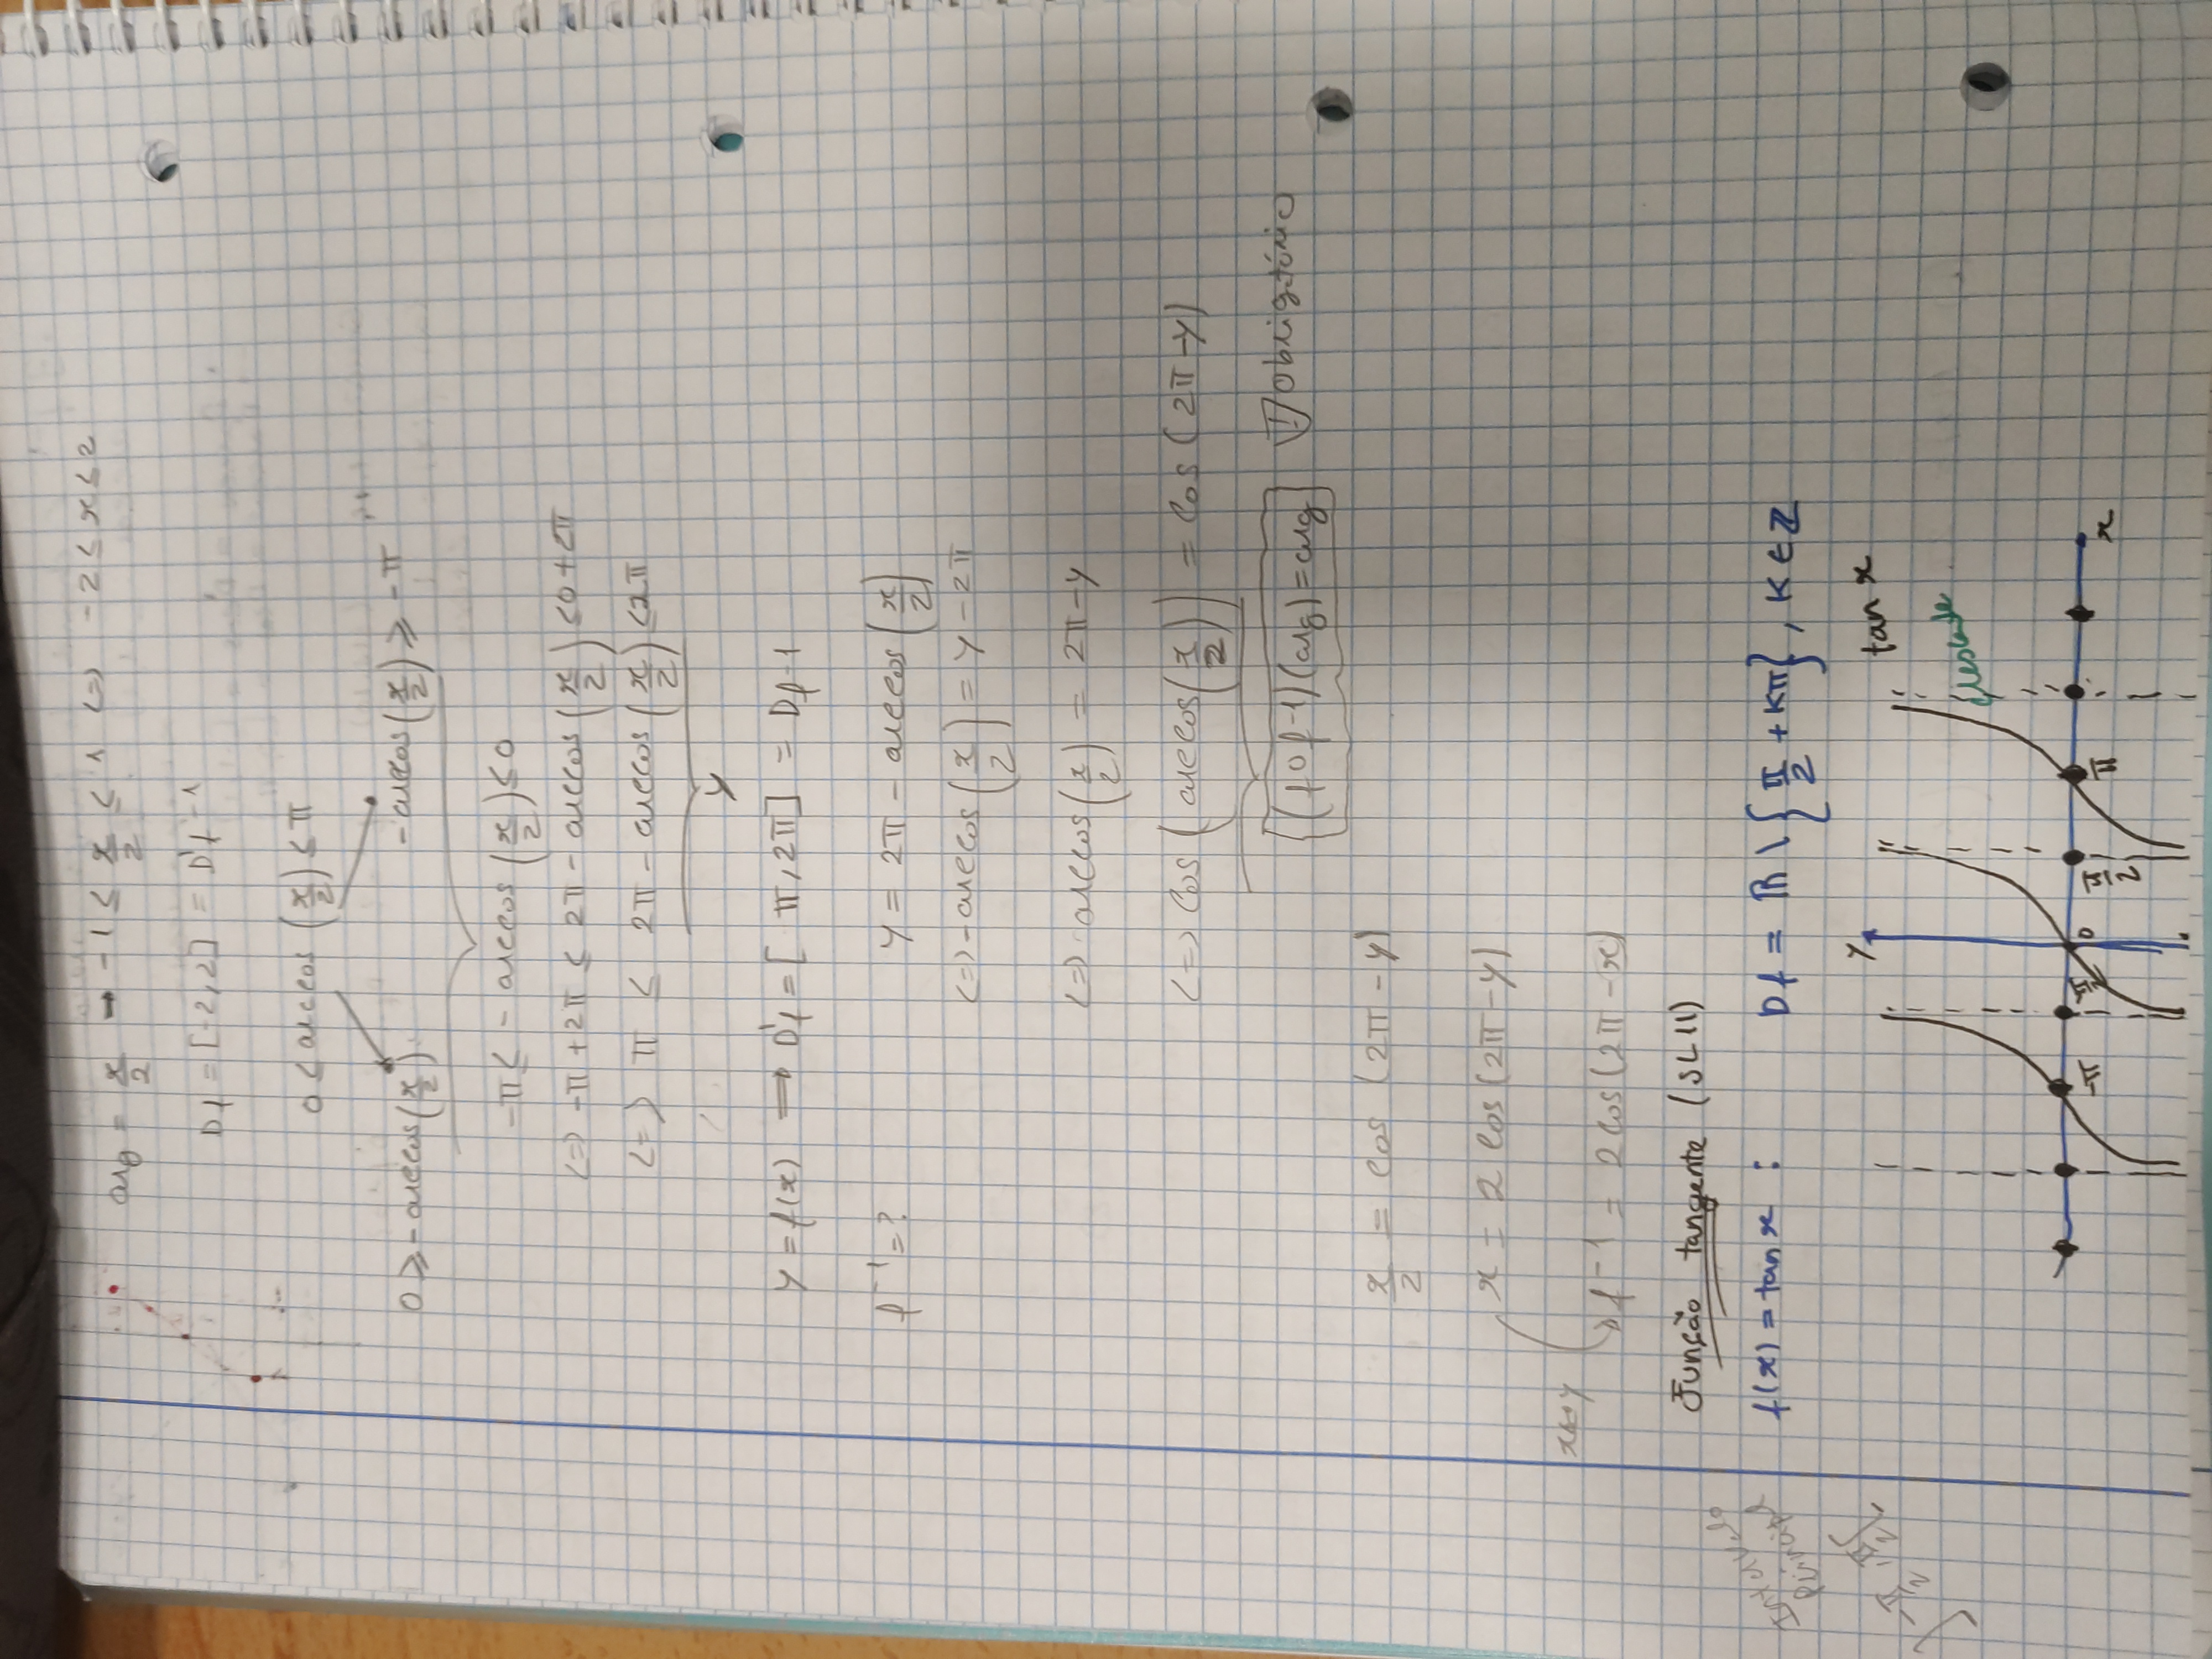 arg = x/2 → -1 ≤ x/2 ≤ 1 <=> -2 ≤ x ≤ 2
Df = [-2,2] = D'f-1
0 ≤ arccos (x/2) ≤ π
0 ≥ - arccos(x/2) - arccos(x/2) ≥ -π
-π ≤ - arccos (x/2) ≤ 0
<=> -π + 2π ≤ 2π - arccos (x/2) ≤ 0 + 2π
<=> π ≤ 2π - arccos (x/2) ≤ 2π
y
y = f(x) ⟹ D'f = [ π, 2π] = Df-1
f⁻¹ = ? y = 2π - arccos (x/2)
<=> - arccos (x/2) = y - 2π
<=> arccos (x/2) = 2π - y
<=> cos ( arccos (x/2)) = cos (2π - y)
(f o f-1)(arg) = arg ! Obrigatório
x/2 = cos (2π - y)
x = 2 cos (2π - y)
x↔y
f⁻¹ = 2 cos (2π - x)
Função tangente (SL11)
Intervalo
Principal
]-π/2, π/2[
f(x) = tan x : Df = ℝ \ {π/2 + Kπ}, K ∈ ℤ
y
tan x
crescente
-π -π/2 0 π/2 π x